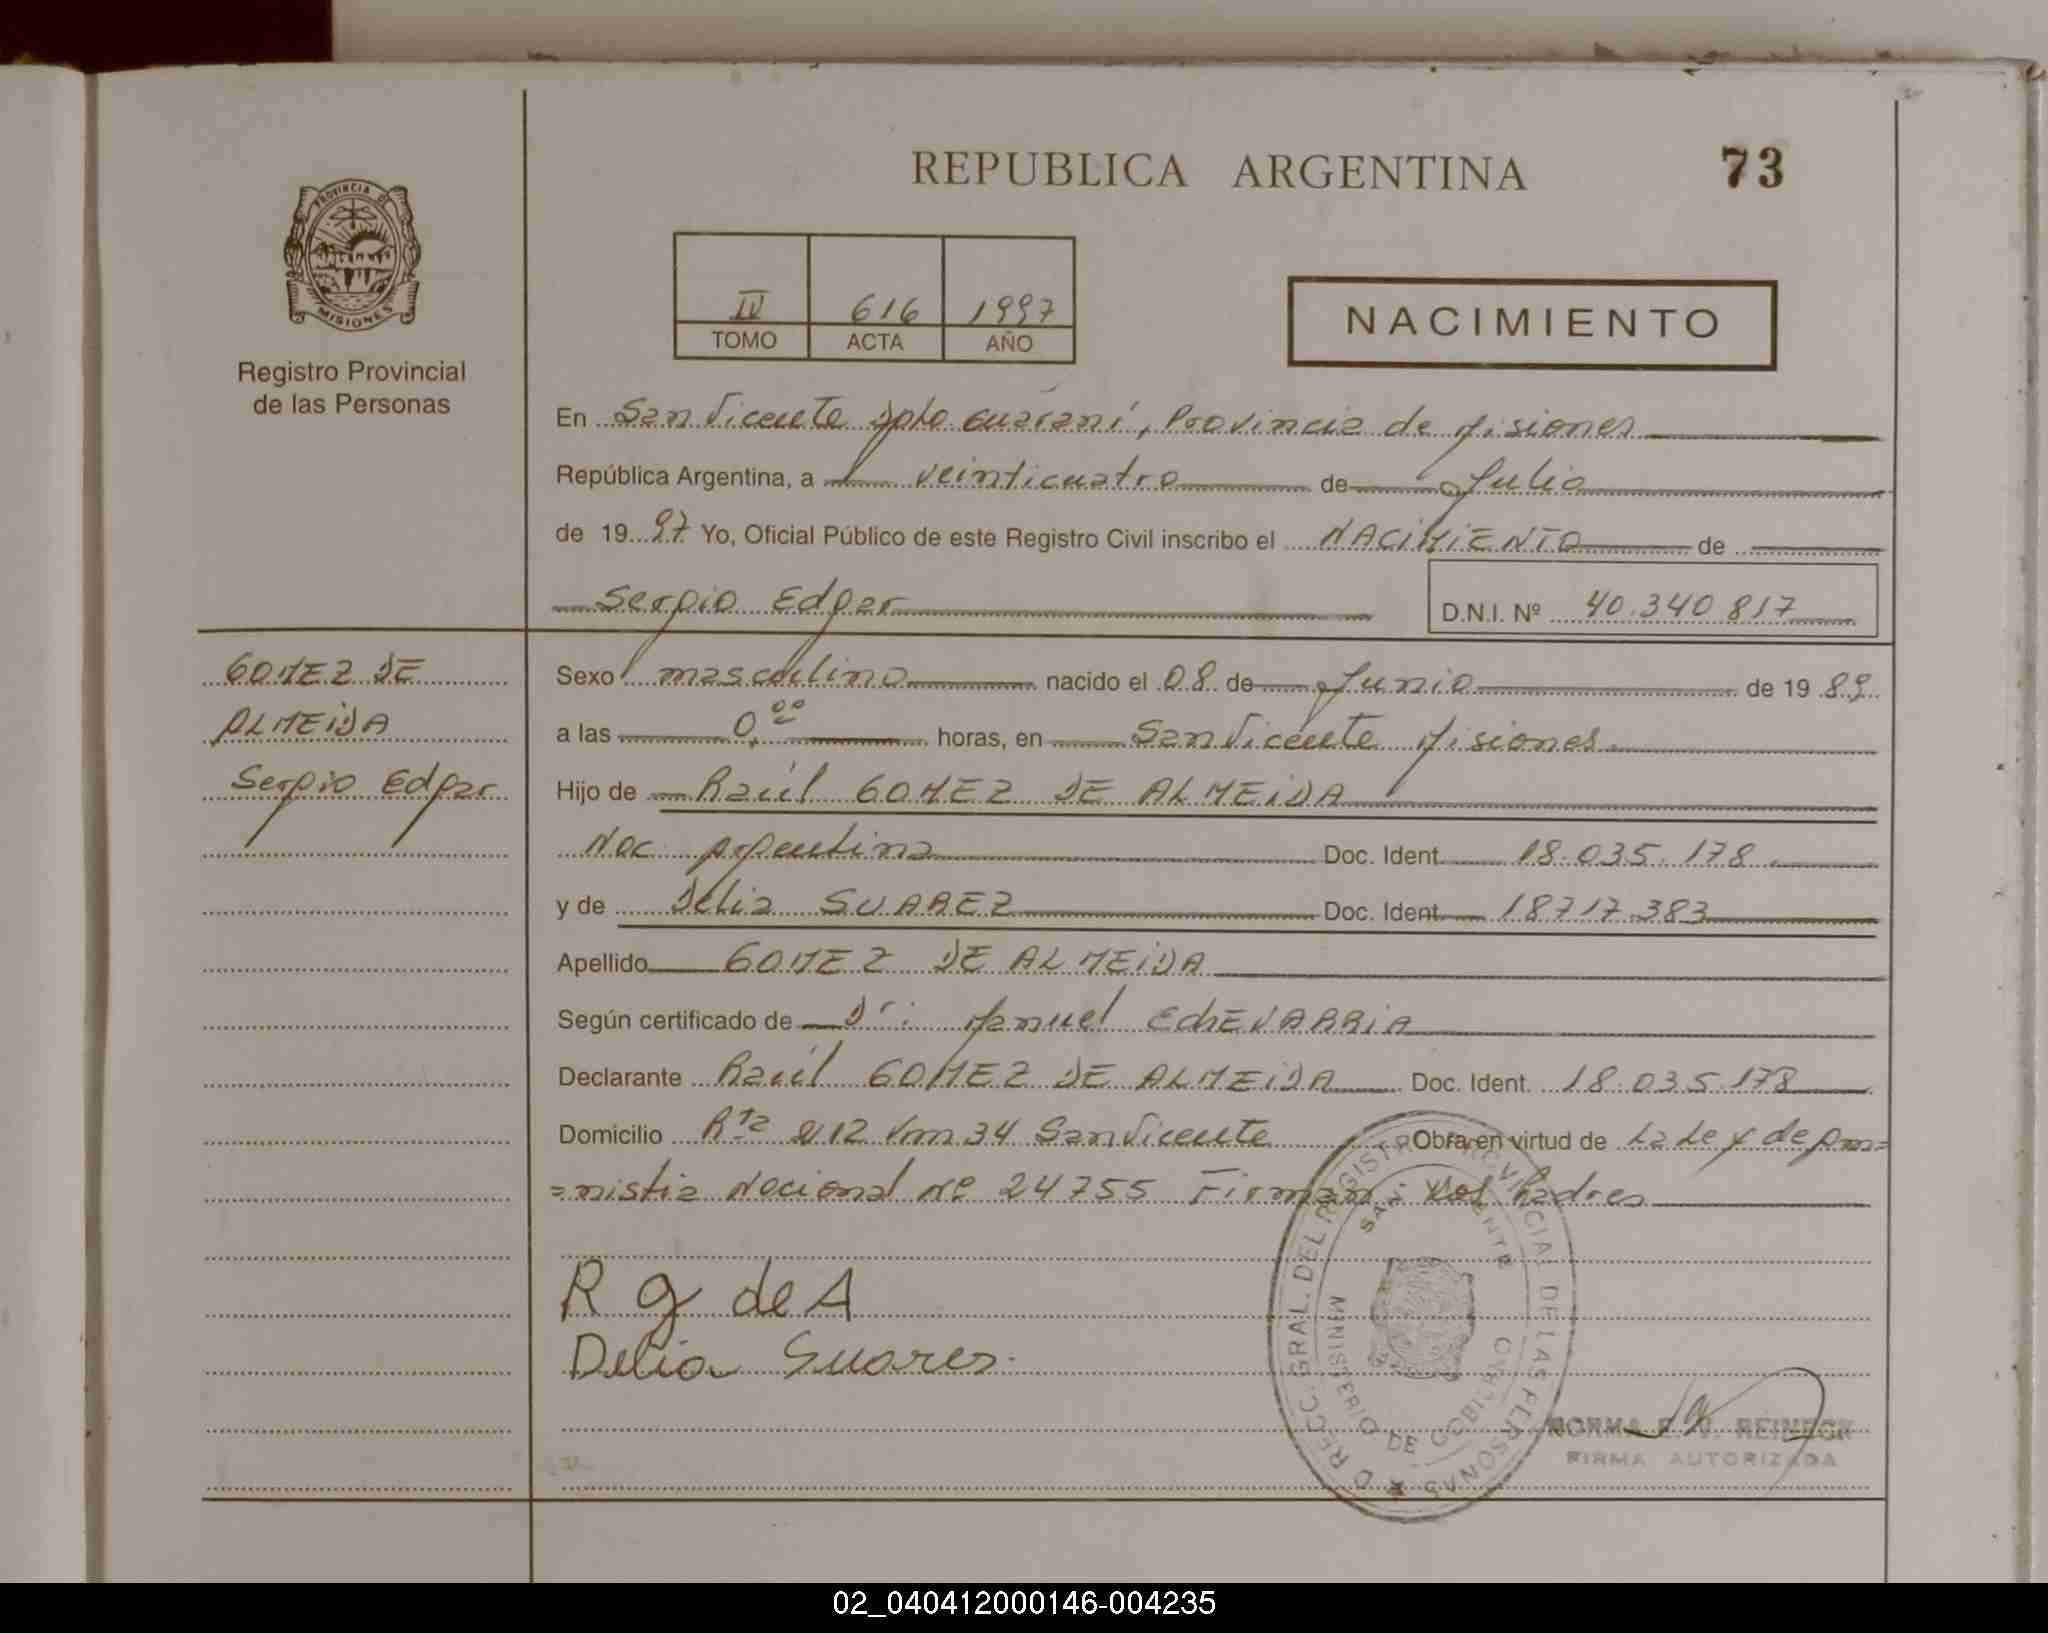 REPUBLICA ARGENTINA
73
PROVINCIA DE
MISIONES
Registro Provincial
de las Personas
IV 616 1997
TOMO ACTA AÑO
NACIMIENTO
En San Vicente Dpto Guaraní, Provincia de Misiones
República Argentina, a veinticuatro de Julio
de 1997 Yo, Oficial Público de este Registro Civil inscribo el NACIMIENTO de
Sergio Edgar
D.N.I. Nº 40.340.817
GOMEZ DE
ALMEIDA
Sergio Edgar
Sexo masculino nacido el 08 de Junio de 1989
a las 0,00 horas, en San Vicente Misiones
Hijo de Raúl GOMEZ DE ALMEIDA
Nac. Argentina Doc. Ident. 18.035.178
y de Delia SUAREZ Doc. Ident. 18717.383
Apellido GOMEZ DE ALMEIDA
Según certificado de Dr: Manuel EchEVARRIA
Declarante Raúl GOMEZ DE ALMEIDA Doc. Ident. 18.035.178
Domicilio Rta 212 Km 34 San Vicente Obra en virtud de La Ley de Am=
=nistia Nacional Nº 24755 Firman: Los Padres
R g de A
Delia Suares.
DIRECC. GRAL. DEL REGISTRO PROVINCIAL DE LAS PERSONAS
SAN VICENTE
MINISTERIO DE GOBIERNO
NORMA E. W. REINECK
FIRMA AUTORIZADA
02_040412000146-004235